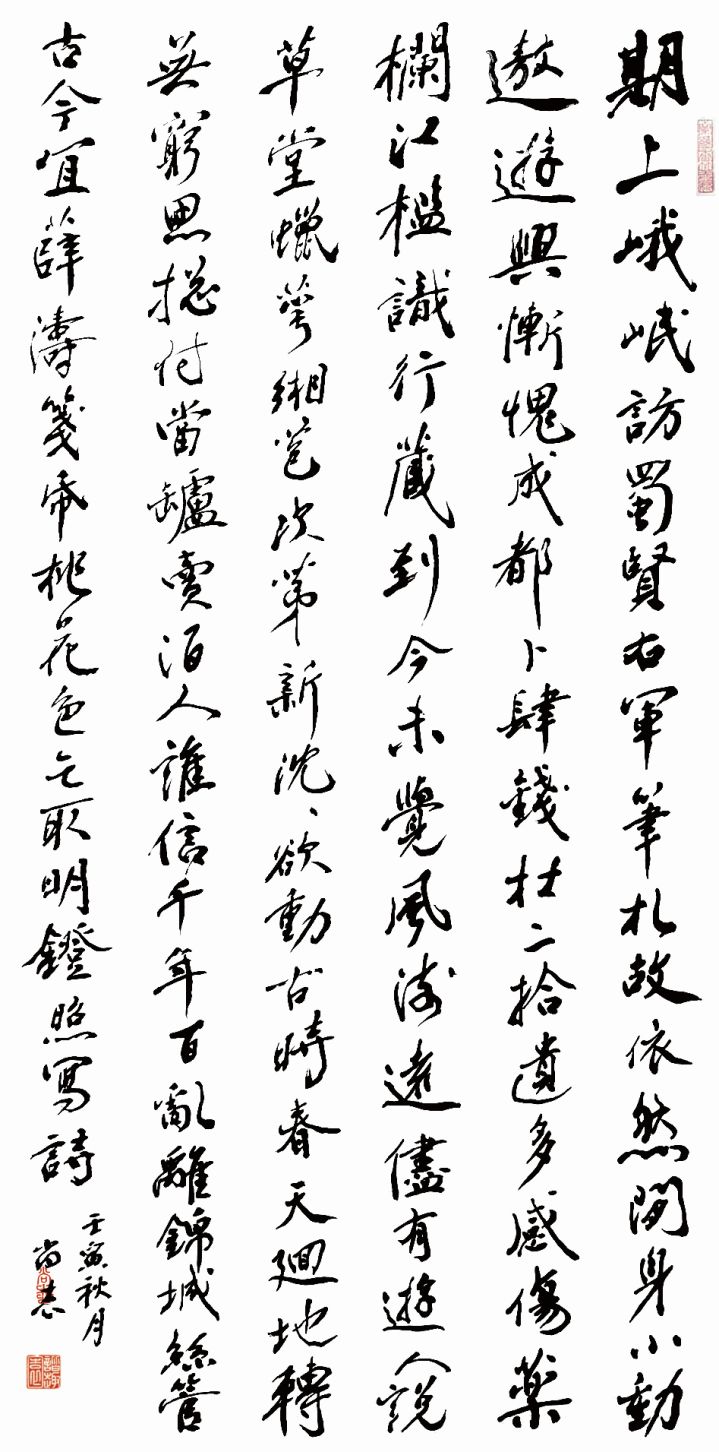 期上峨岷訪蜀賢右軍筆札故依然閒身小動
遨遊興慚愧成都卜肆錢杜二拾遺多感傷藥
欄江檻識行藏到今未覺風流遠儘有遊人說
草堂蠟萼緗苞次第新沈〻欲動古時春天迴地轉
無窮思總付當罏賣酒人誰信千年百亂離錦城絲管
古今宜薛濤箋帋桃花色乞取明鐙照寫詩
壬寅秋月